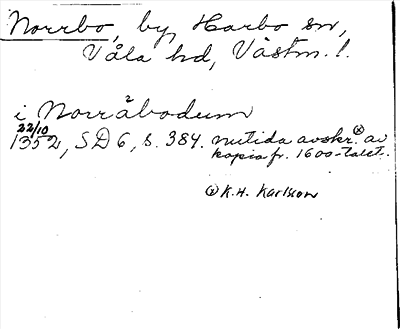 Norrbo, by, Harbo sn,
Våla hd, Västm. l.
i Norråbodum
22/10
1352, SD 6, s. 384. nutida avskr. ⓧ av
kopia fr. 1600-talet.
ⓧ K.H. Karlsson